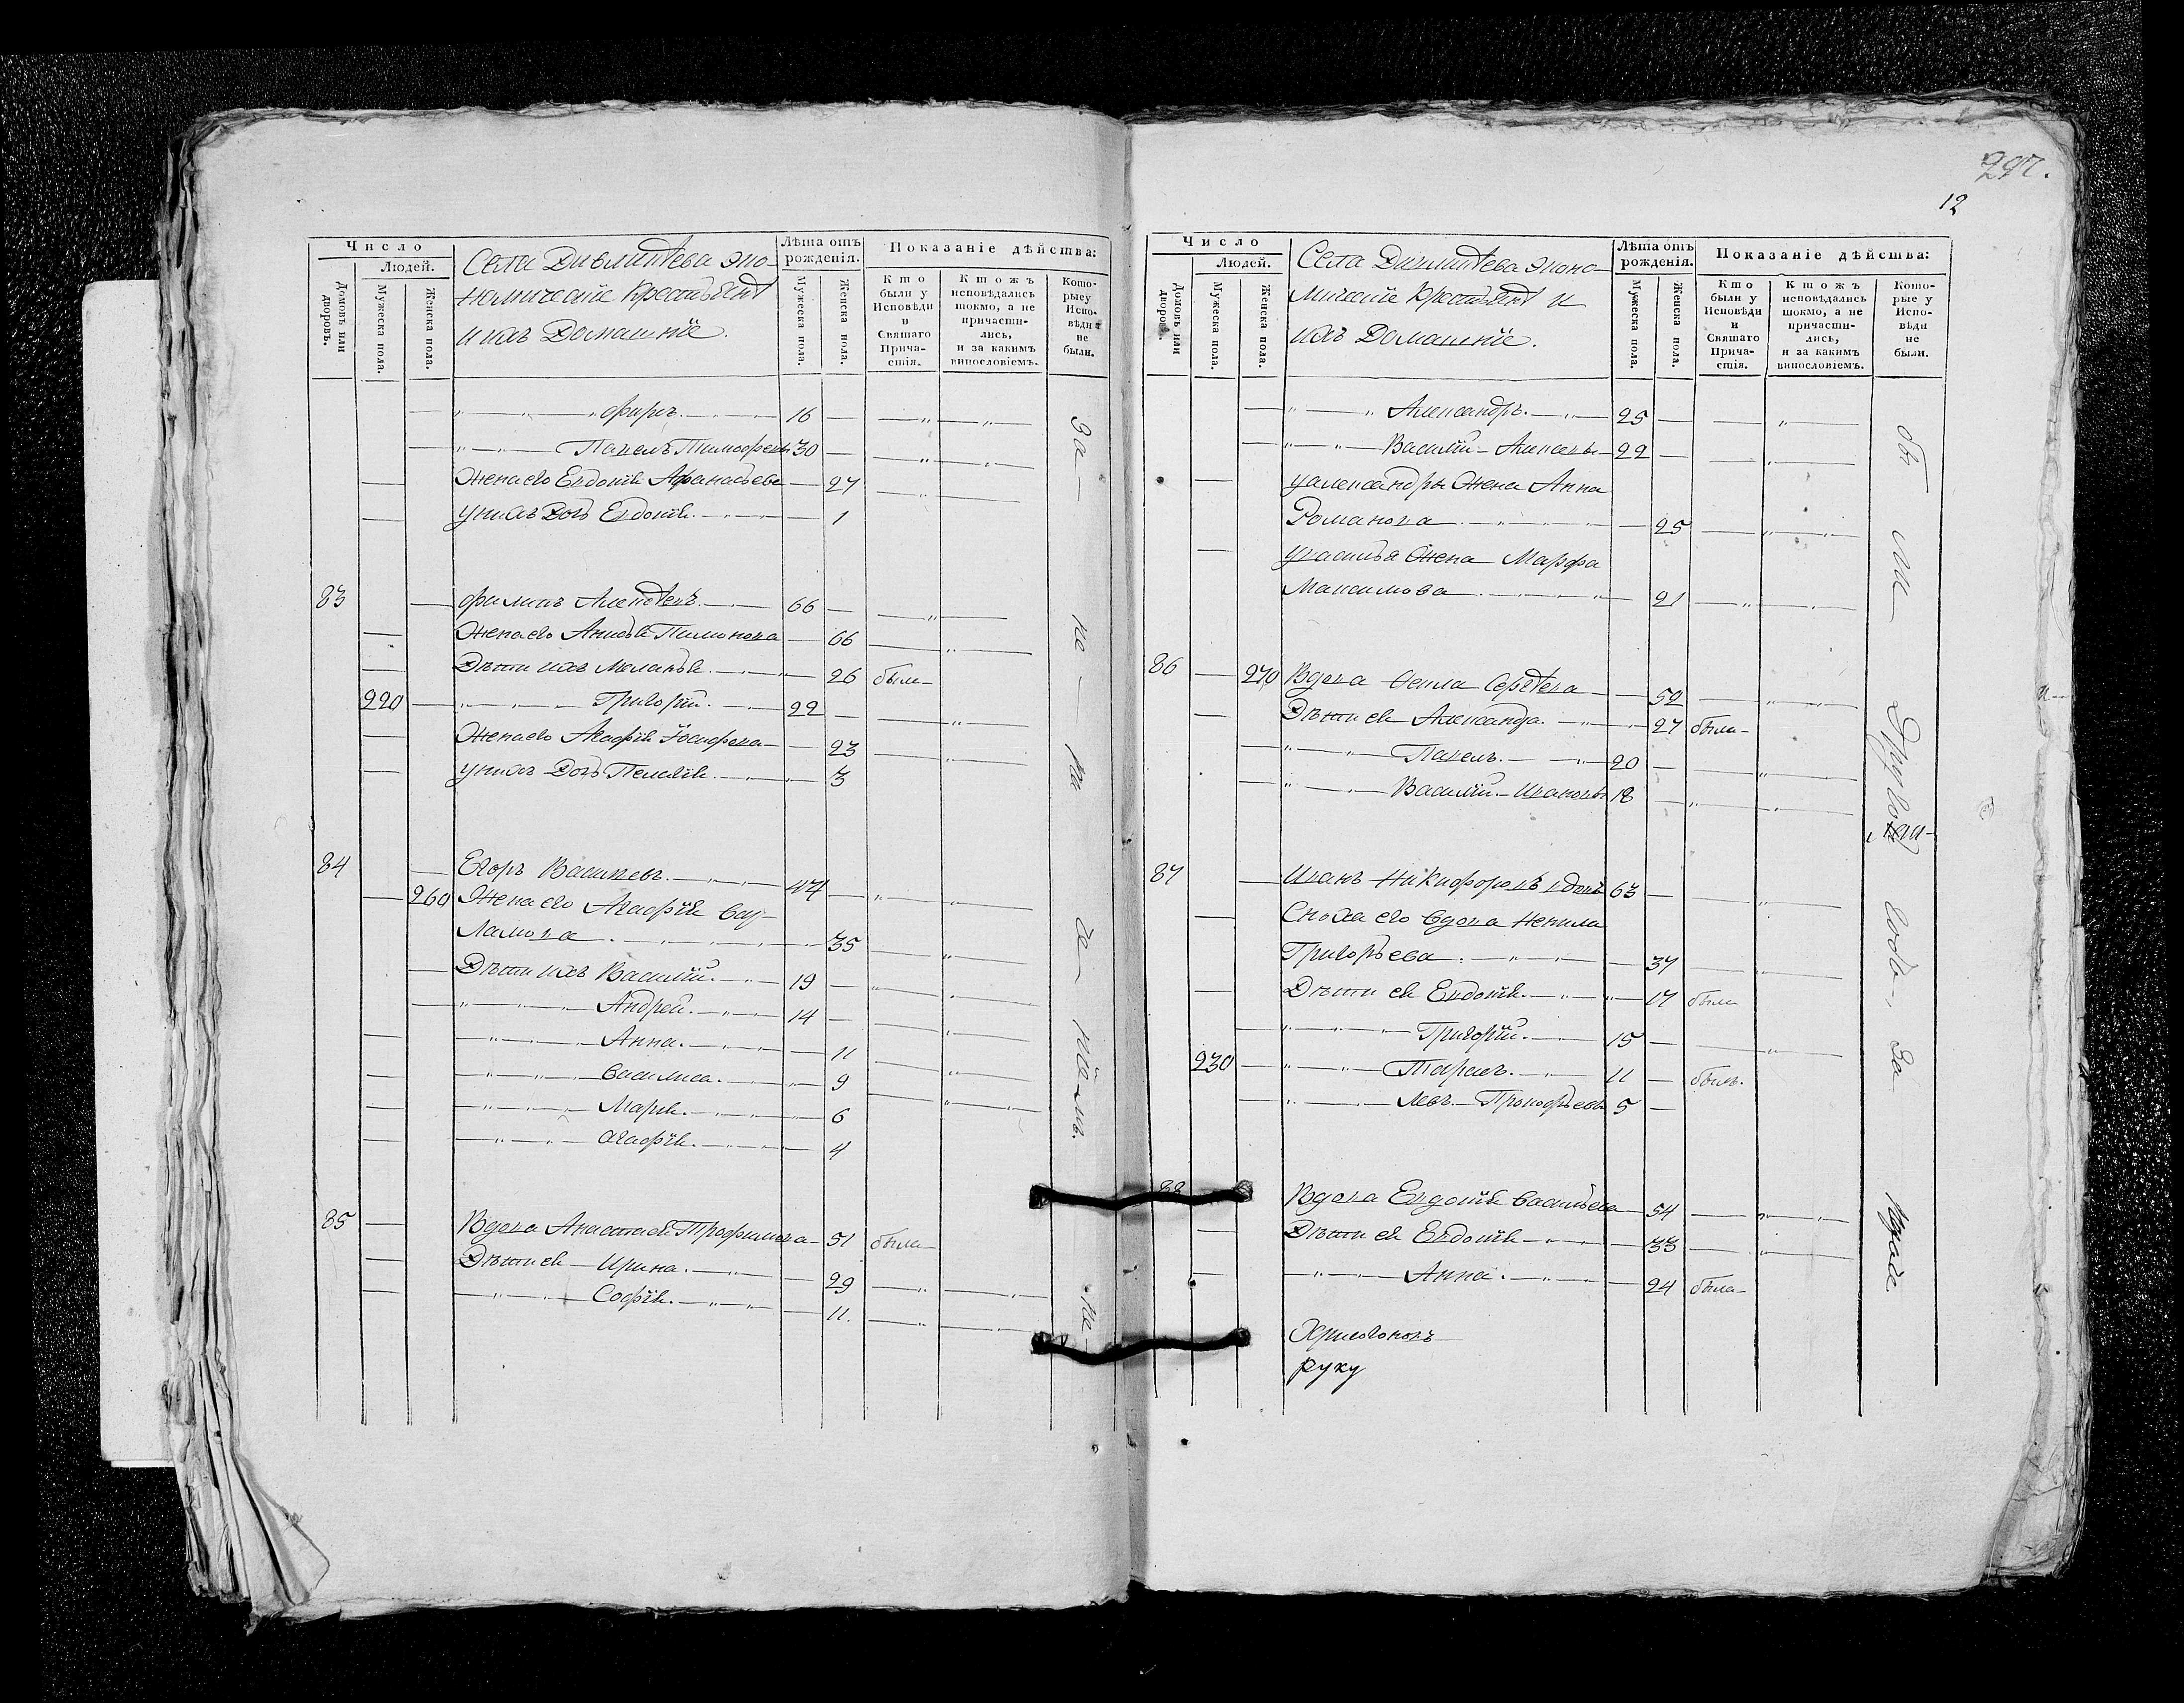 297.
12
Число
Людей.
Домовъ или дворовъ.
Мужеска пола.
Женска пола.
Села Дивлитѣева эко-
номическіе крестьянѣ
и ихъ Домашніе.
Лѣта отъ рожденія.
Мужеска пола.
Женска пола.
Показаніе дѣйства:
Кто были у Исповѣди и Святаго Причастія.
Ктожъ исповѣдались токмо, а не причастились, и за какимъ винословіемъ.
Которые у Исповѣди не были.
Фирсъ. 16
Павелъ Тимофеевы 30
Жена его Евдокія Афанасьева 27
у нихъ Дочь Евдокія. 1
83 Филипъ Алексѣевъ. 66
Жена его Анисья Пимонова 66
Дѣти ихъ Меланья. 26 была
220 Григорій. 22
Жена его Агафія Іосифова 23
у нихъ Дочь Пелагія. 3
84 Егоръ Васильевъ. 47
260 Жена его Агафія Вау-
ламова 35
Дѣти ихъ Василій. 19
Андрей. 14
Анна. 11
Василиса. 9
Марія. 6
Агафія. 4
85 Вдова Анастасія Трофимова 51 была
Дѣти ея Ирина. 29
Софія. 11.
Число
Людей.
Домовъ или дворовъ.
Мужеска пола.
Женска пола.
Села Дивлитѣева эконо-
мическіе крестьянѣ и
ихъ Домашніе.
Лѣта отъ рожденія.
Мужеска пола.
Женска пола.
Показаніе дѣйства:
Кто были у Исповѣди и Святаго Причастія.
Ктожъ исповѣдались токмо, а не причастились, и за какимъ винословіемъ.
Которые у Исповѣди не были.
Александръ. 25
Василій Алексевы 22
у Александры Жена Анна
Романова 25
у Василья Жена Марфа
Максимова 21
86 270 Вдова Фекла Сергѣева 52
Дѣти ея Александра. 27 была
Павелъ. 20
Василій Ивановы 18
87 Иванъ Никифоровъ вдовъ 63
Сноха его вдова Ненила
Григорьева 37
Дѣти ея Евдокія 17 была
Григорій. 15
230 Тарасъ. 11 былъ.
Левъ Прокофьевы 5
88 Вдова Евдокія Васильева 54
Дѣти ея Евдокія 33
Анна. 24 была
руку